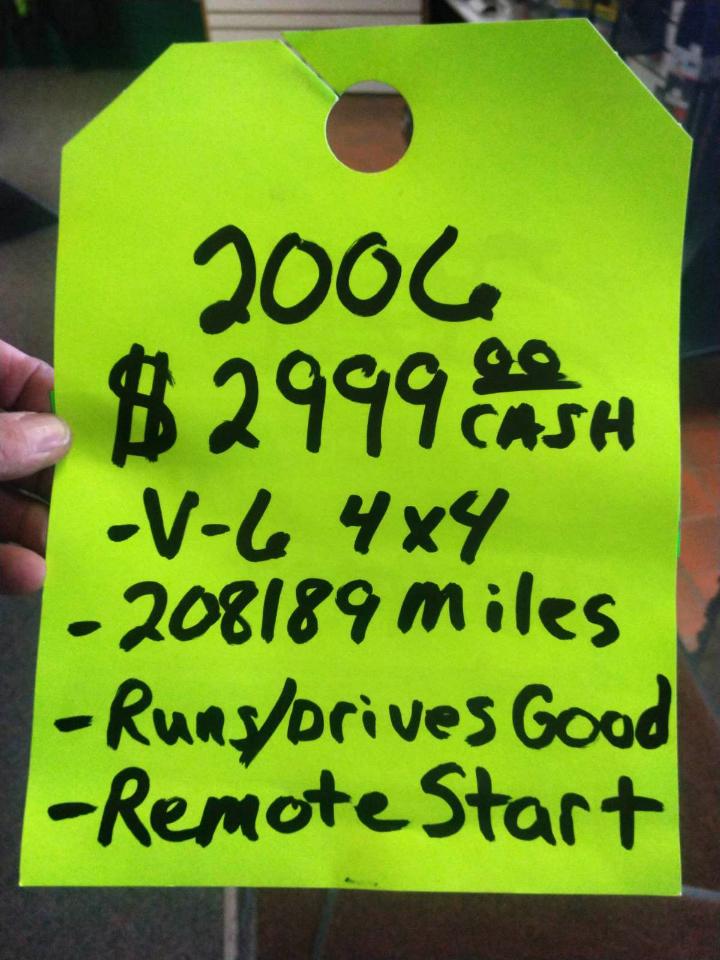 2006
$2999 00 CASH
-V-6 4x4
-208189 miles
-Runs/Drives Good
-Remote Start